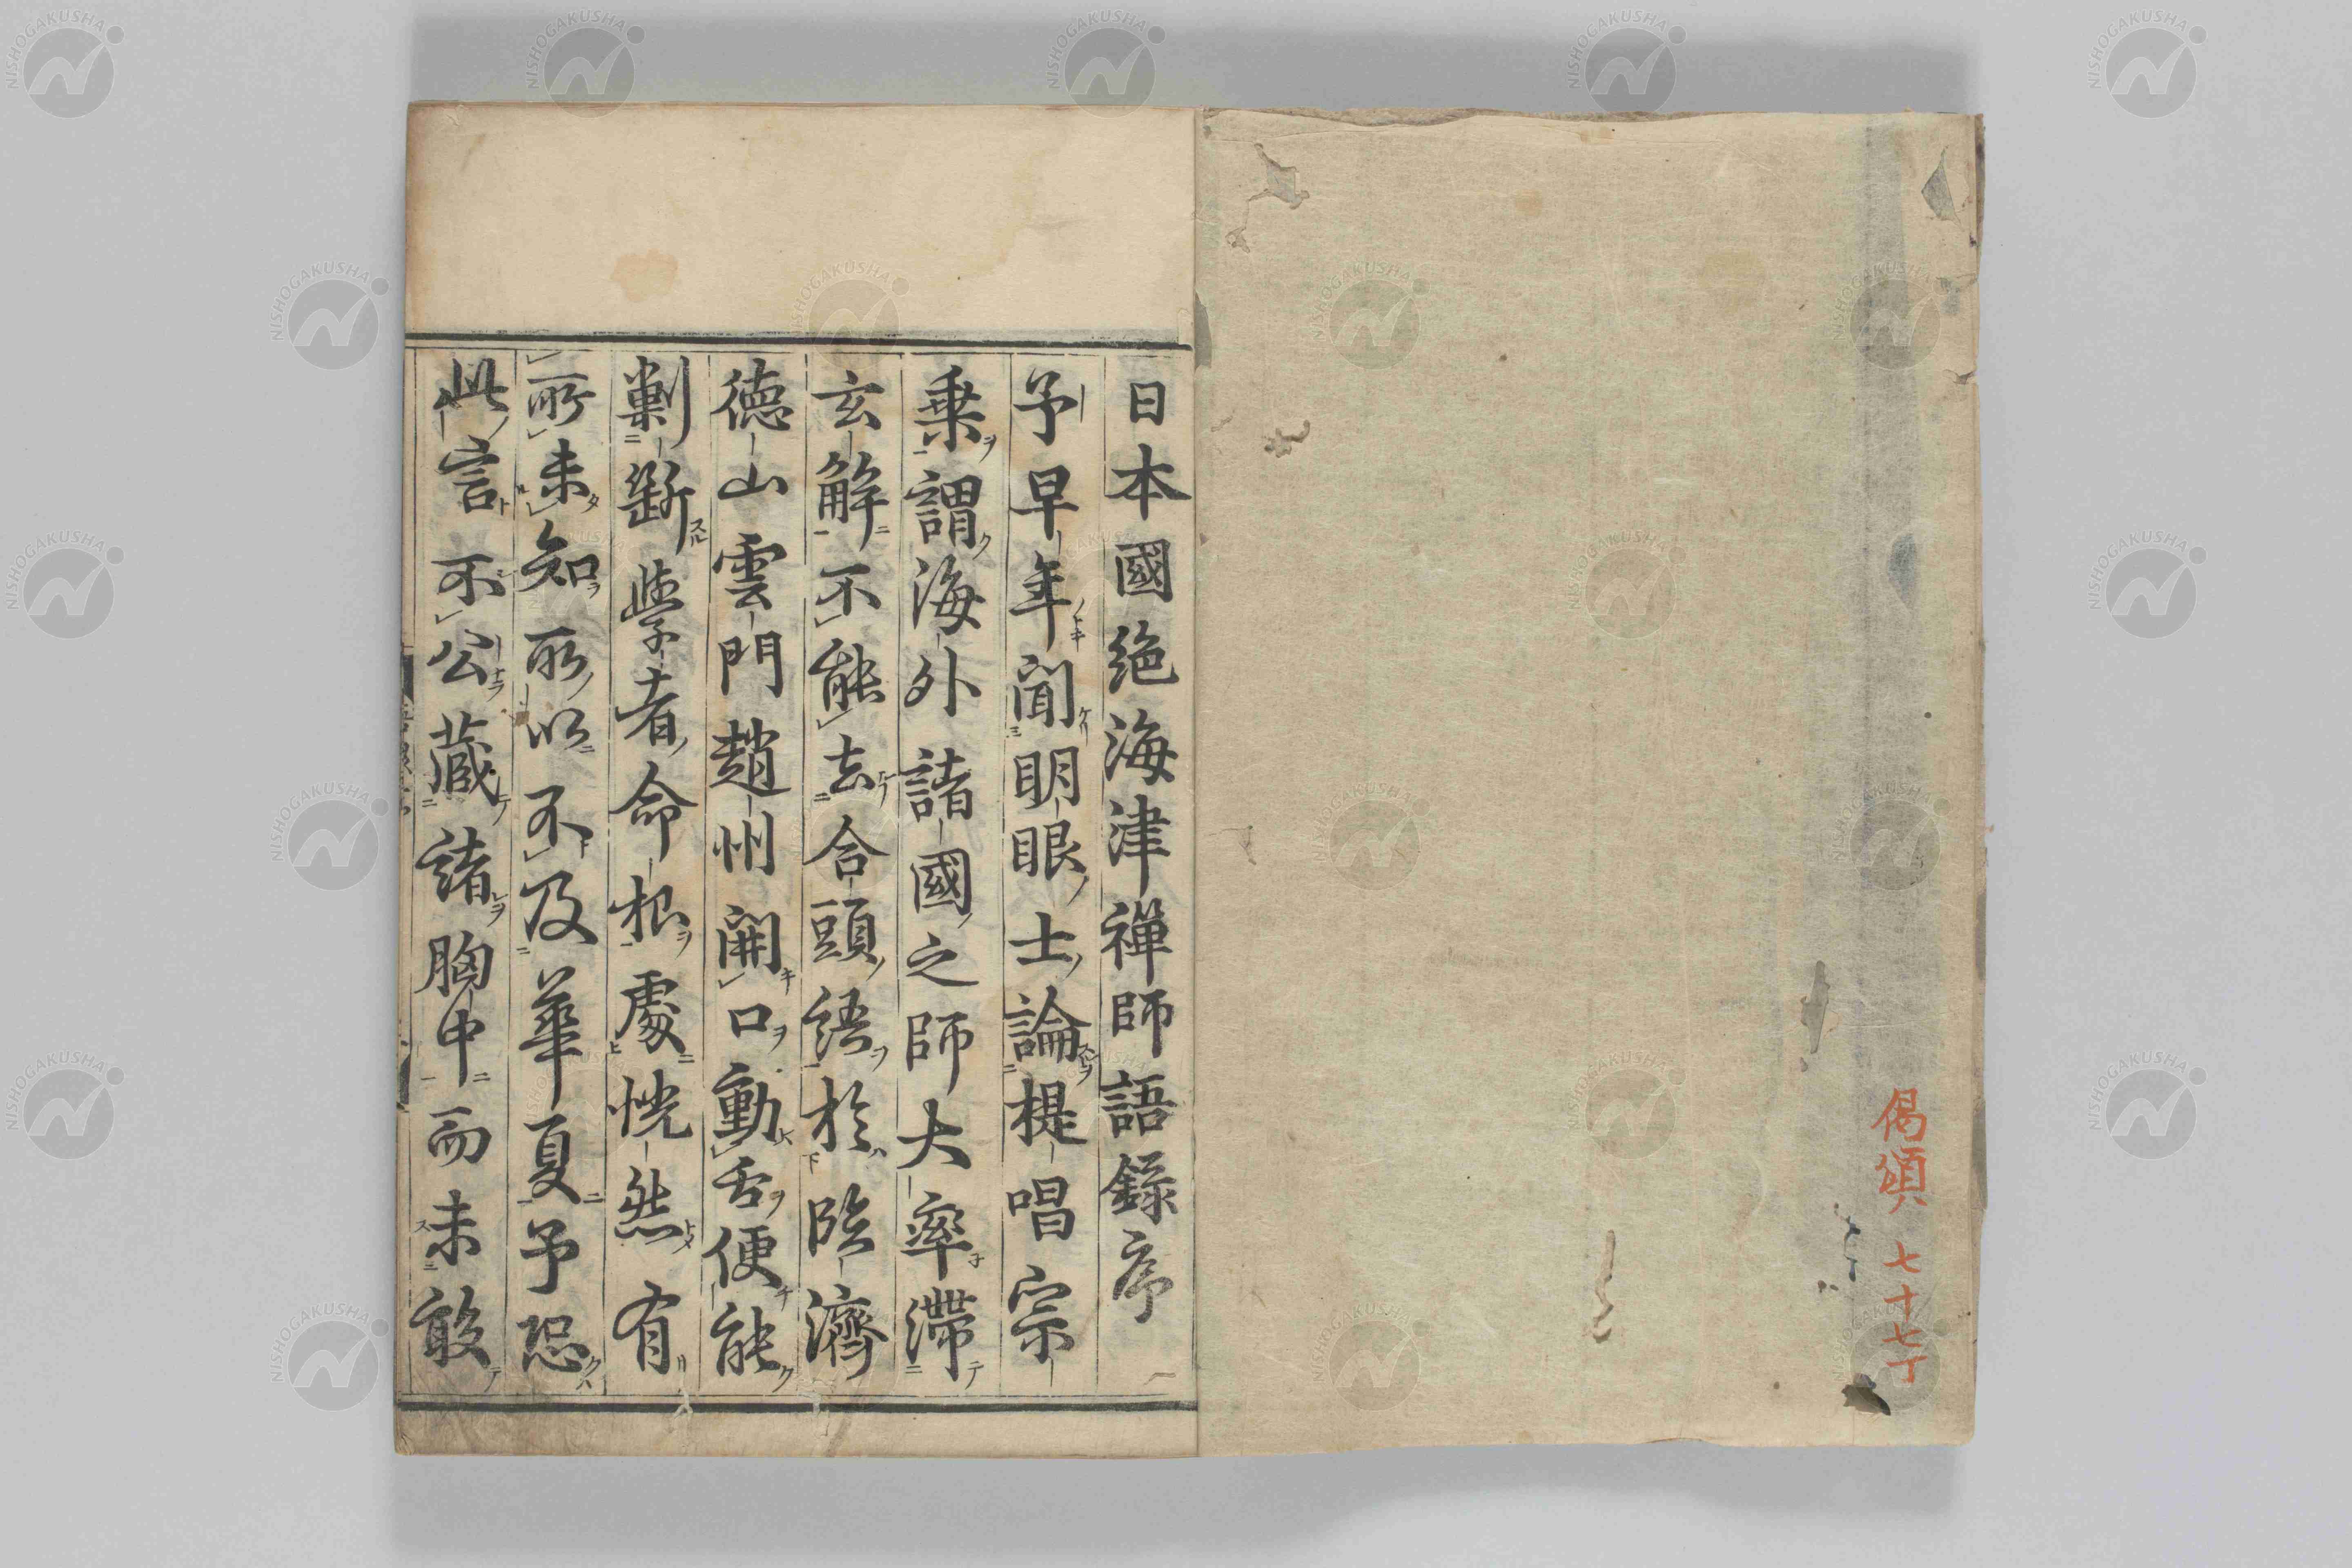 偈頌 七十七丁
日本國絶海津禪師語錄序
予早年聞明眼士論提唱宗
乗謂海外諸國之師大率滯
玄解不能去合頭語於臨濟
德山雲門趙州開口動舌便能
剿斷學者命根處恍然有
所未知所以不及華夏予恐
此言不公蔵諸胸中而未敢